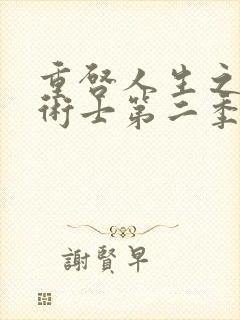 重啓人生之
術士第二季
謝賢早